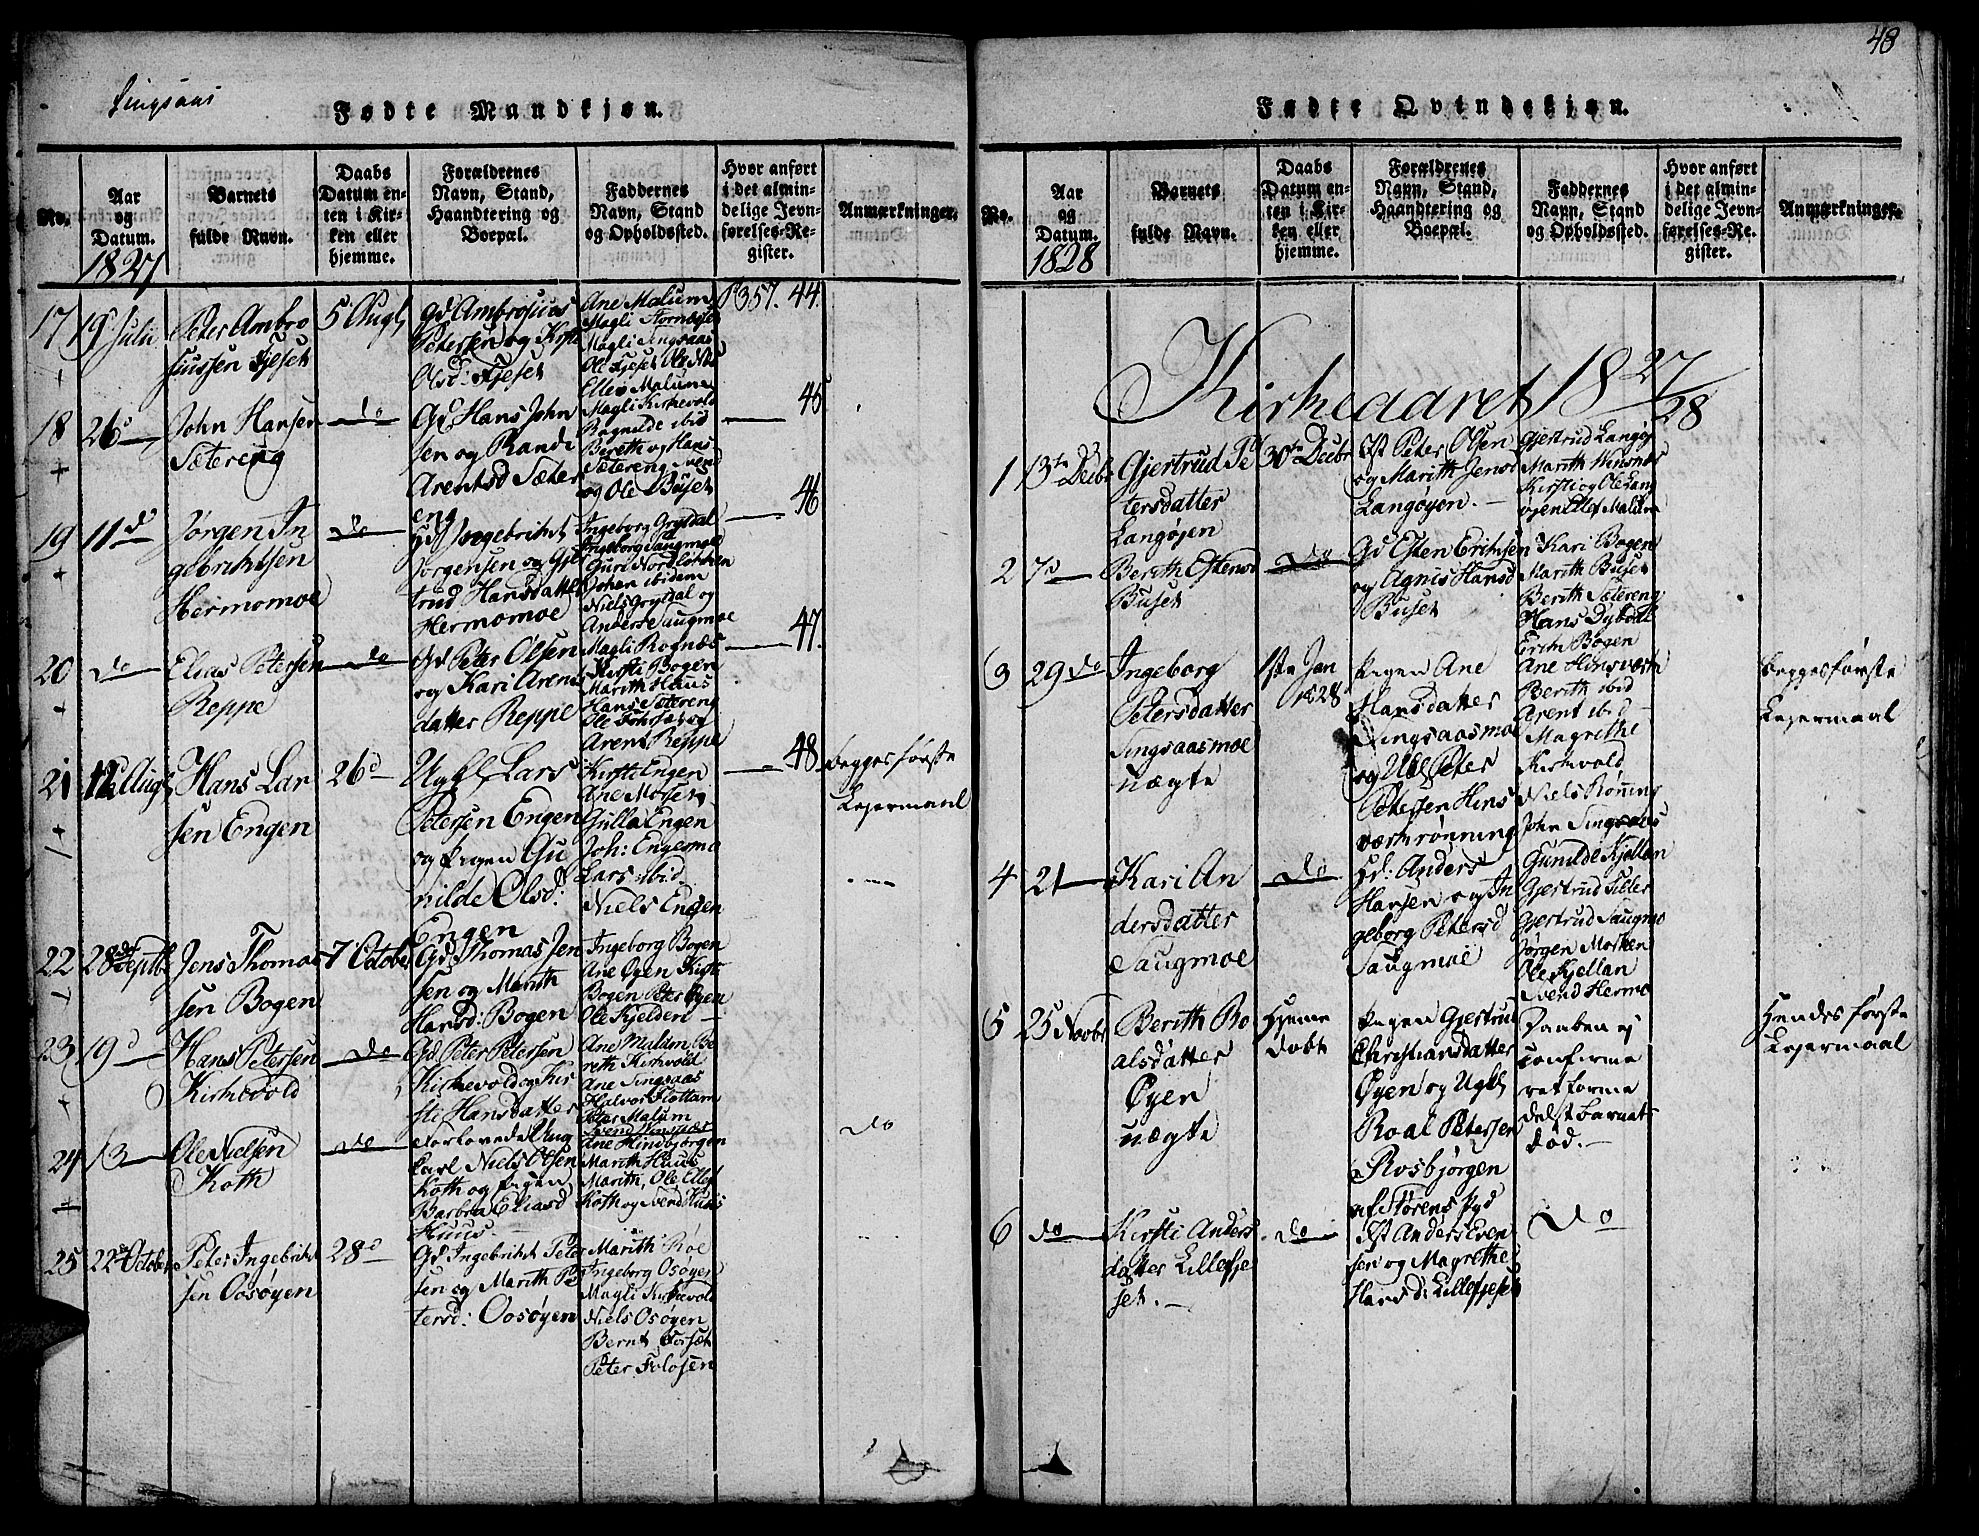 Singsaas
Fødte Mandkjøn.
No.
Aar
og
Datum.
1827
Barnets
fulde Navn.
Daabs
Datum en-
ten i Kir-
ken eller
hjemme.
Forældrenes
Navn, Stand,
Haandtering og
Boepæl.
Faddernes
Navn, Stand
og Opholdssted.
Hvor anført
i det almin-
delige Jevn-
førelses-Re-
gister.
Anmærkninger.
17
19 Julii
Peter Ambro
siussen Fjeset
5 Augt
Gd Ambrosius
Petersen og Kirsti
Olsd: Fjeset
Ane Malum
Magli
Magli Singsaas
Ole Fjeset Ole
Ellev Malum
P 357. 44.
18
26 d
John Hansen
Sætereng
do
Gd Hans John
sen og Randi
Arentsd Sæter
eng
Magli Kirkevold
Bagnilde ibid
Berith og Hans
Sætereng Svend
og Ole Buset
45
19
11 d
Jørgen In
gebrihtsen
Hermomoe
do
Hd Ingebriht
Jørgensen og Gjer
trud Hansdatter
Hermomoe
Ingeborg Grytdal
Ingeborg Saugmoe
Guri
Johan ibidem
Niels Grytdal og
Anders Saugmoe
46
20
do
Elias Petersen
Reppe
do
Gd Peter Olsen
og Kari Arents
datter Reppe
Magli Rognæs
Kirsti Bogen
Marith Huus
Hans Sætereng
Ole
Arent Reppe
47.
21
12 Augt
Hans Lar
sen Engen
26 d
Ugkl Lars
Petersen Engen
og Pigen Gu
nilde Olsd:
Engen
Kirsti Engen
Ane Moset
Gulla Engen
Joh: Engesmo
Lars ibid
Niels Engen
48
begges første
Lejermaal
22
28 de Septb
Jens Thomas
sen Bogen
7 October
Gd Thomas Jen
sen og Marith
Hansd: Bogen
Ingeborg Bogen
Ane Øyen Kirsti
Bogen Peter Øyen
Ole Kjelden
23
19 d
Hans Petersen
Kirkvold
do
Gd Peter Petersen
Kirkevold og Kir
sti Hansdatter
Ane Malum Be
reth Kirkvold
Ane Singsaas
Halvor Flottam
Peter Malum
Svend Winsnæs
24
13
Ole Nielsen
Koth
do
Forlovede Ung
karl Niels Olsen
Koth og Pigen
Barbra Eliasd
Huus.
Ane Hindbjørgen
Marith Huus
Marith, Ole Ellef
Koth og Svend Huus
do
25
22 de October
Peter Ingebriht
sen Oosøyen
28 d
Gd Ingebriht Peter
sen og Marith Pe
tersd: Oosøyen
Marith Roe
Ingeborg Osøyen
Magli Kirkevold
Niels Osøyen
Bernt Forset
Peter Folosen
48
Fødte Qvindekjøn.
No.
Aar
og
Datum.
1828
Barnets
fulde Navn.
Daabs
Datum en-
ten i Kir-
ken eller
hjemme.
Forældrenes
Navn, Stand,
Haandtering og
Boepæl.
Faddernes
Navn, Stand
og Opholdssted.
Hvor anført
i det almin-
delige Jevn-
førelses-Re-
gister.
Anmærkninger.
Kirkeaaret 1827/28
1
13te Decbr
Gjertrud Pe
tersdatter
Langøjen
30te Decbr
Ist Peter Olsen
og Marith Jensd
Langøyen.
Gjertrud Langøj
Marith Winsnæs
Kirsti og Ole Lang
øjen Ellef Malum
2
7 d
Berith Estensd
Buset
do
Gd Esten Erichsen
og Agnis Hansd
Buset
Kari Bogen
Marith Buset
Berith Sætereng
Hans Dybdal
Erich Bogen
3
29 do
Ingeborg
Petersdatter
Singsaasmoe
uægte
1ste Jan
1828
Pigen Ane
Hansdatter
Singsaasmoe
og Ubl Peter
Petersen Hins
værkrønning
Ane Hinsværk
Berith ibid
Arent ibid
Magrethe
Kirkvold
Niels Rønning
John Singsaas
begges første
Lejermaal
4
21
Kari An
dersdatter
Saugmoe
do
Hd: Anders
Hansen og In
geborg Petersd
Saugmoe
Gunilde Kjellan
Gjertrud Tiller
Gjertrud Saugmo
Jørgen Morken
Ole Kjellan
Svend Hermo
5
25 Novbr
Berith Ro
alsdatter
Øyen
uægte
Hjemme
døbt
Pigen Gjertrud
Christiansdatter
Øyen og Ugkl
Roal Petersen
Rosbjørgen
af Størens Pgd
Daaben ej
confirme
ret forme
delst Barnets
død.
Hendes første
Lejermaal
6
do
Kirsti Anders
datter Lillefje
set.
do
Ist Anders Even
sen og Magrethe
Hansd: Lillefjeset
do